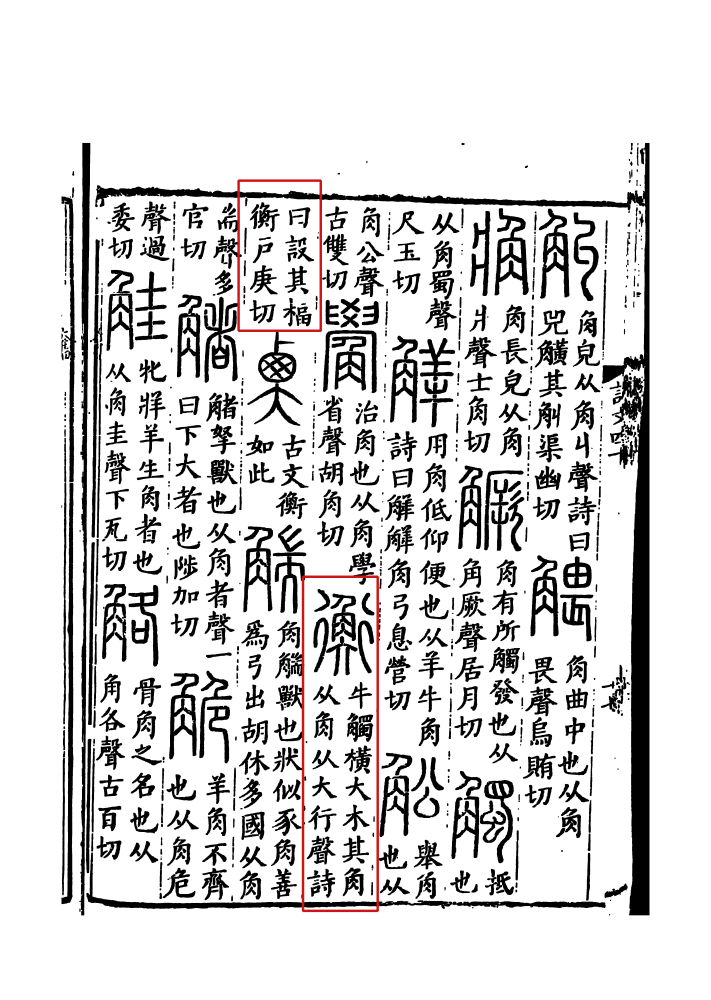 觓
角皃从角丩聲詩曰
兕觵其觓渠幽切
䚈
角曲中也从角
畏聲烏賄切
角長皃从角
爿聲士角切
角有所觸發也从
角厥聲居月切
觸
抵
也
从角蜀聲
尺玉切
觲
用角低仰便也从羊牛角
詩曰觲觲角弓息營切
舉角
也从
角公聲
古雙切
觷
治角也从角學
省聲胡角切
衡
牛觸橫大木其角
从角从大行聲詩
曰設其楅
衡戶庚切
古文衡
如此
角觿獸也狀似豕角善
爲弓出胡休多國从角
耑聲多
官切
觰
觰拏獸也从角者聲一
曰下大者也陟加切
觤
羊角不齊
也从角危
聲過
委切
觟
牝牂羊生角者也
从角圭聲下瓦切
觡
骨角之名也从
角各聲古百切